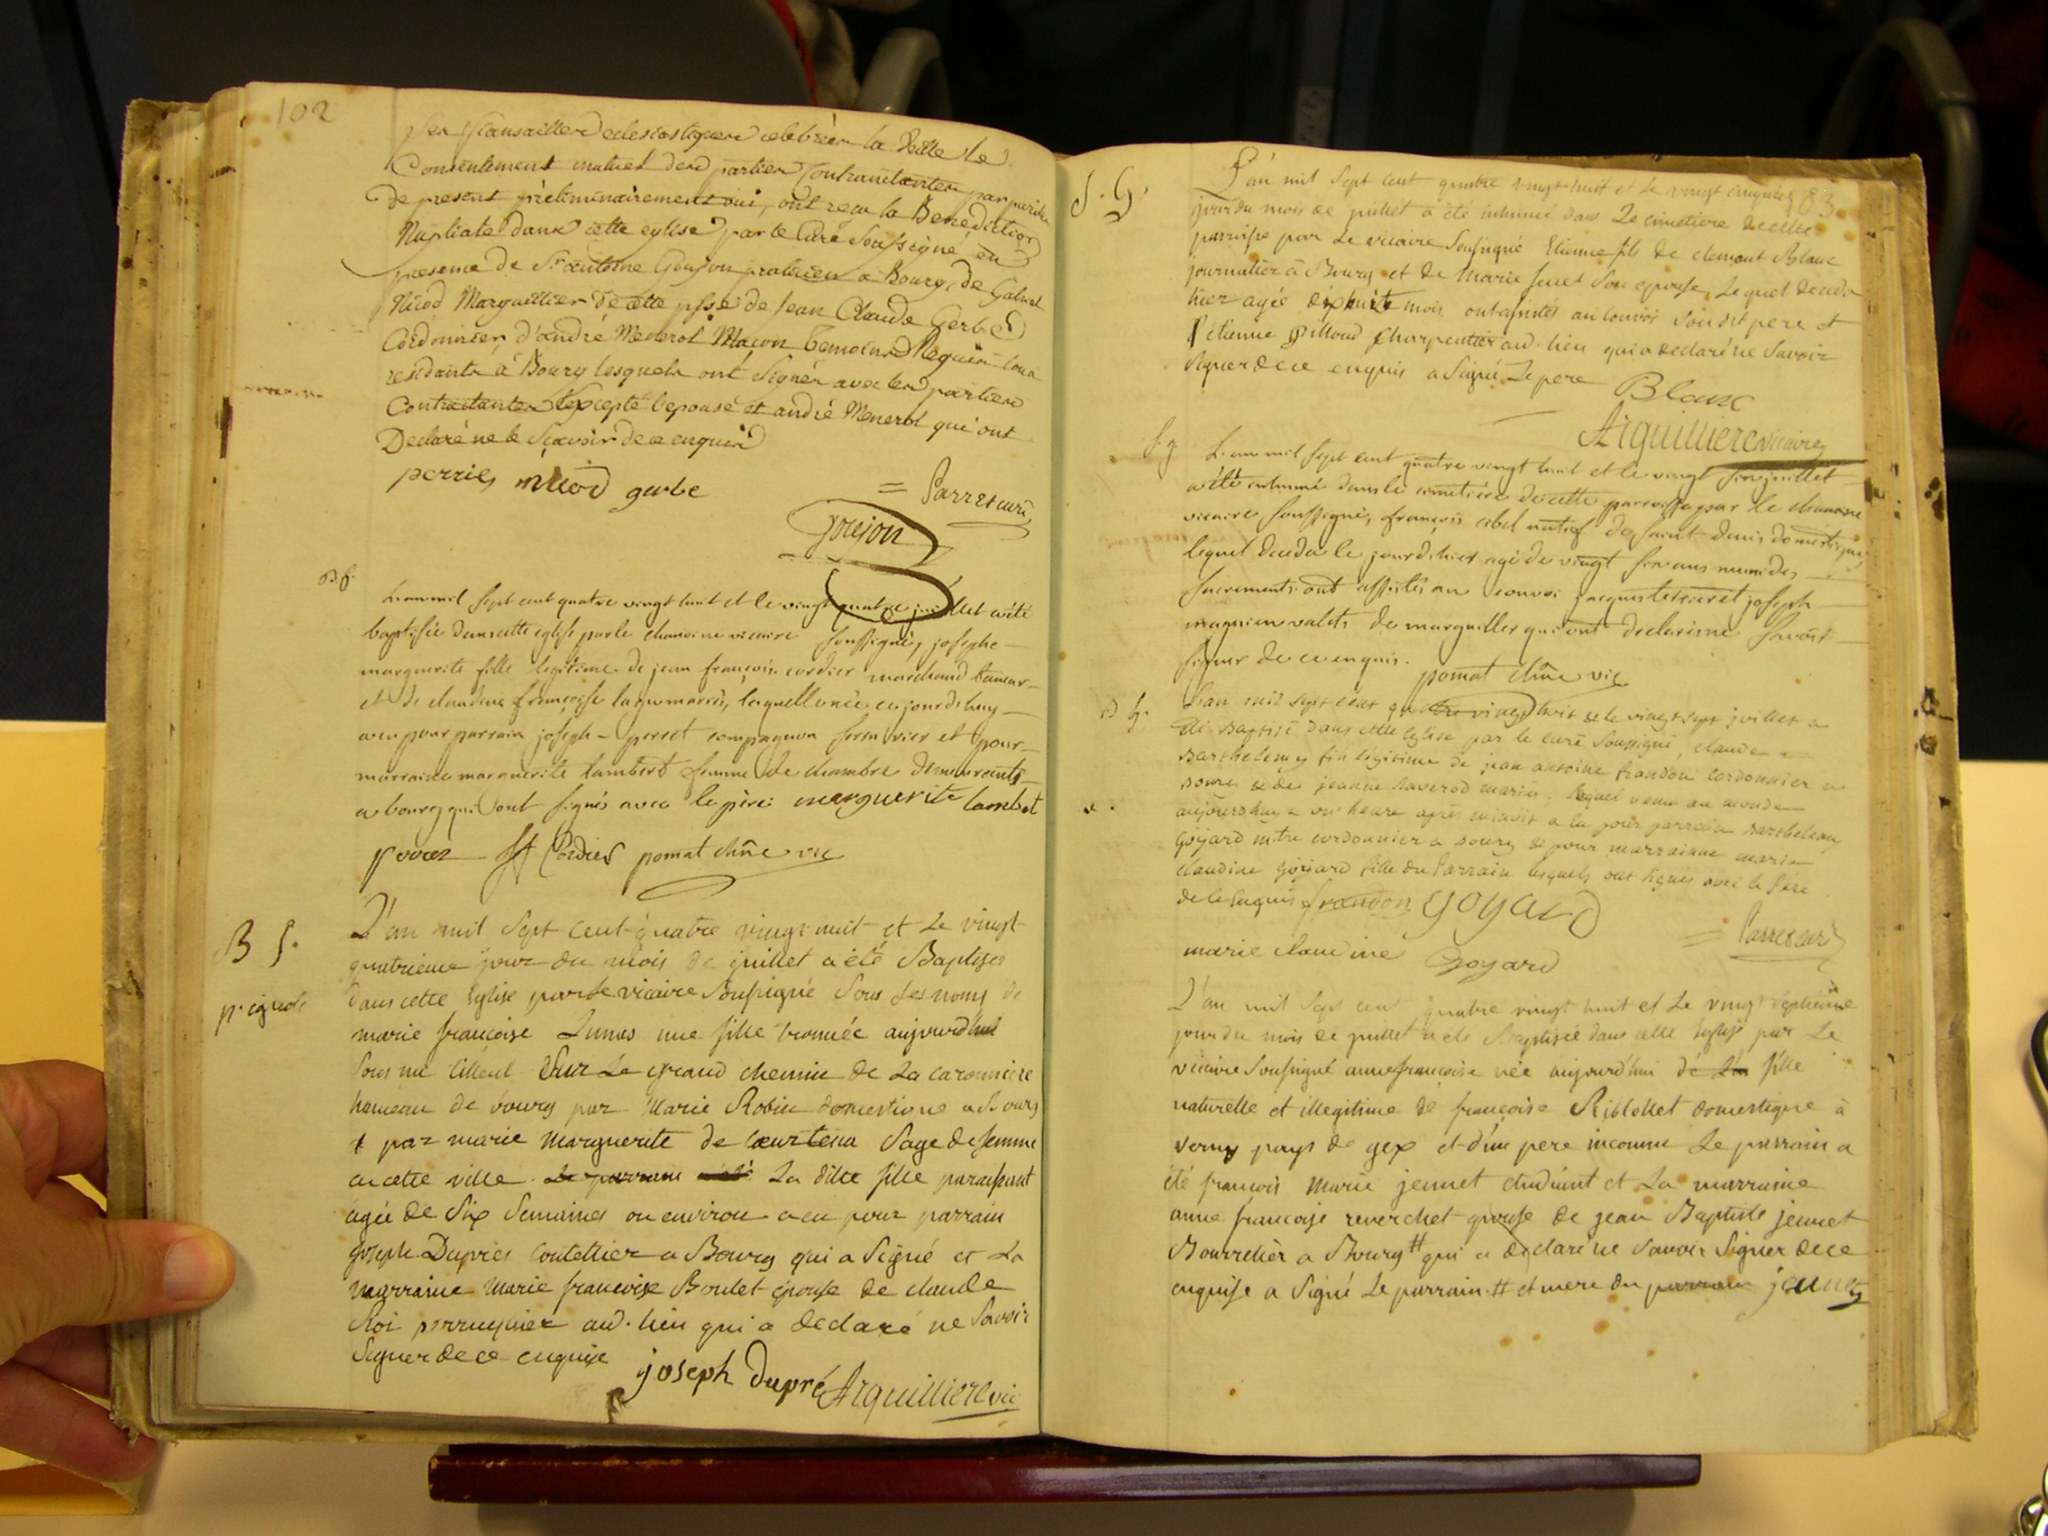 102
les fiansailles eclesiastiques celebrées la veille le
Consentement mutuel des parties Contractantes par paroles
de present préliminairement oui, ont reçu la Benediction
Nuptiale dans cette eglise par le Curé soussigné, en
presence de Sr antoine Goujon praticien a Bourg, de Gabriel
Nicod Marguillier de cette psse de Jean Claude Gerbe
Cordonnier, d'andré Menerot Macon temoins Requis tous
residants à Bourg lesquels ont signés avec les parties
Contractantes Excepté l'epouse et andré Menerot qui ont
Declaré ne le sçavoir de ce enquis
perrier nicod gerbe
= Parret curé
Goujon
L'an mil sept cent quatre vingt huit et le vingt quatre juillet a été
baptisée dans cette eglise par le chanoine vicaire soussigné, josephe
marguerite fille legitime de jean françois cordier marchand taneur
et de claudine françoise mariés, laquelle née ce jourdhuy
a eu pour parrain joseph perret compagnon serrurier et pour
marraine marguerite lambert femme de chambre demeurants
a bourg qui ont signés avec le père marguerite lambet
Cordier pomat chne vic
B S.
L'an mil sept cent quatre vingt huit et le vingt
quatrieme jour du mois de juillet a été Baptisée
dans cette Eglise par le vicaire Soussigné Sous les noms de
marie françoise Lunas une fille trouvée aujourd'hui
Sous un tilleul Sur Le grand chemin de La caronniere
hameau de bourg par Marie Robin domestique a Bourg
et par marie Marguerite de Courtena Sage defemme
en cette ville. Le parrain a été La ditte fille paraissant
agée de Six Semaines ou environ a eu pour parrain
Joseph Dupriés coutellier a Bourg qui a Signé et La
marraine Marie françoise Boulet épouse de claude
Roi perruquier aud. lieu qui a declaré ne Savoir
Signer de ce enquise
joseph dupré Arquilliere vic
S. G.
L'an mil Sept cent quatre vingt huit et le vingt cinquieme 83
jour du mois de juillet a été inhumé dans Le cimetiere de cette
paroisse par Le vicaire Soussigné Etienne fils de clemant Blanc
journalier à Bourg et de Marie Son epouse, Lequel deceda
hier agée dixhuite mois ont assistés au convoi Son dit pere et
etienne pilloud Charpentier aud. lieu qui a declaré ne Savoir
Signer de ce enquis a Signé Le pere Blanc
Arquilliere vicaire
S g
L'an mil sept cent quatre vingt huit et le vingt six juillet
a été inhumé dans le cimetiere de cette paroisse par le chanoine
vicaire soussigné, françois natif de saint denis domestique
lequel deceda le jourd'hier agé de vingt six ans muni des
sacrements ont assistés au convoi jacques et joseph
magnien valets de marguiller qui ont declarés ne savoir
signer de ce enquis. pomat chne vic
L'an mil sept cent quatre vingt huit et le vingt sept juillet a
été Baptisé dans cette Eglise par le curé soussigné, claude
Barthelemy fils légitime de jean antoine frandon cordonnier a
bourg et de jeanne mariés; lequel venu au monde
aujourdhuy a une heure après minuit a eu pour parrain Barthelemy
Goyard mtre cordonnier a bourg et pour marrainne marie
claudine Goyard fille du Parrain lesquels ont signés avec le Père
de ce Enquis frandon GOYARD
= Parret curé
marie clau dine Goyard
L'an mil Sept cent quatre vingt huit et Le vingt Septieme
jour du mois de juillet a été Baptisée dans cette Eglise par Le
vicaire Soussigné annefrançoise née aujourd'hui fille
naturelle et illegitime de françoise Riblollet domestique à
verny pays de gex et d'un pere inconnu Le parrain a
été françois Marie jeunet etudiant et La marraine
anne françoise reverchet épouse de jean Baptiste jeunet
Bourrelier a Bourg # qui a declaré ne Savoir Signer de ce
enquise a Signé Le parrain # et mere du parrain jeunet